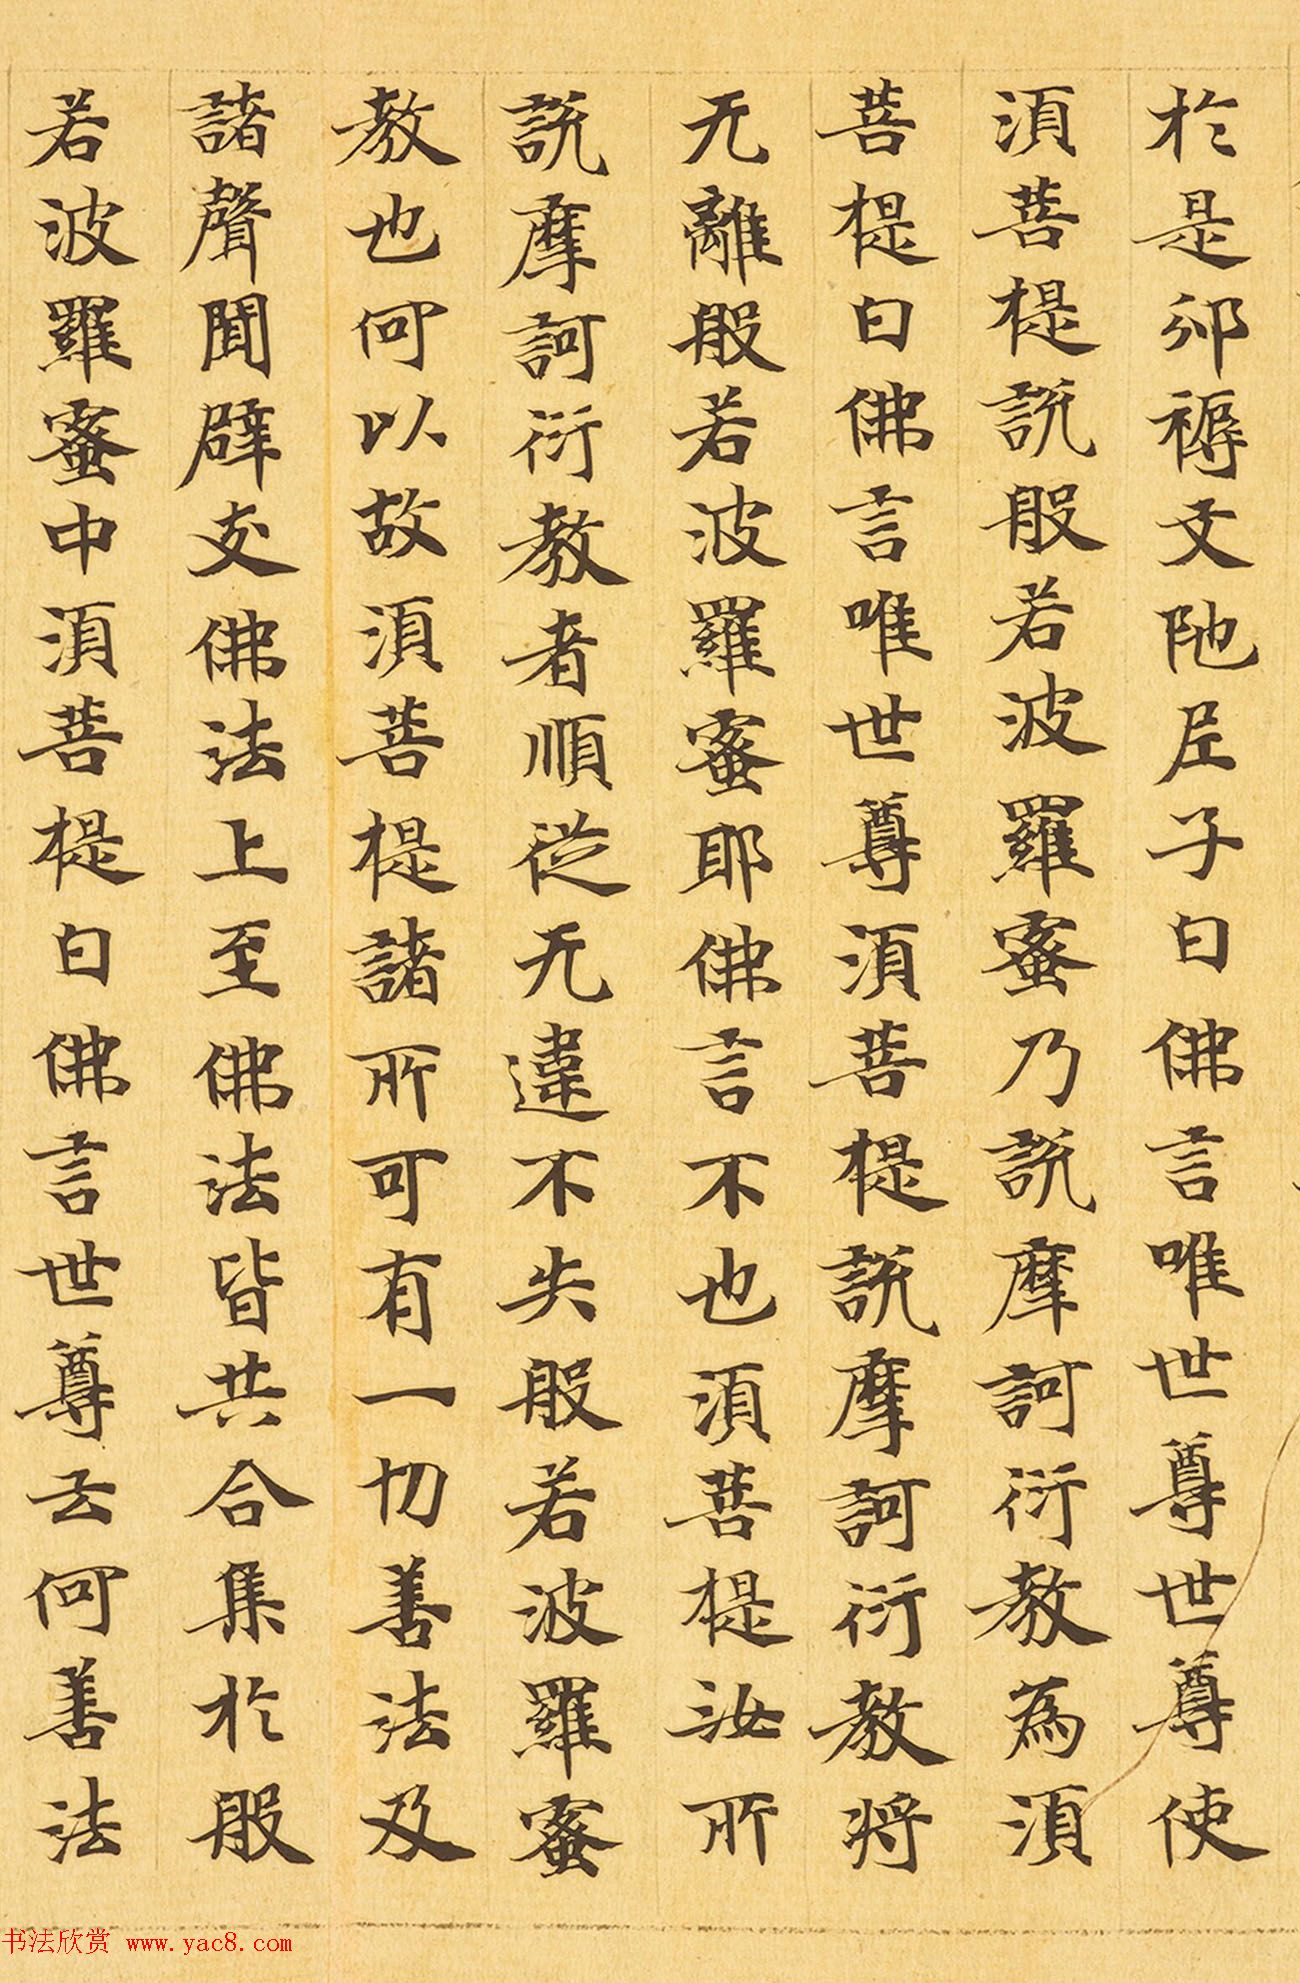 於是邠耨文陁尼子白佛言唯世尊世尊使
須菩提說般若波羅蜜乃說摩訶衍教為須
菩提白佛言唯世尊須菩提說摩訶衍教將
无離般若波羅蜜耶佛言不也須菩提汝所
說摩訶衍教者順從无違不失般若波羅蜜
教也何以故須菩提諸所可有一切善法及
諸聲聞辟支佛法上至佛法皆共合集於般
若波羅蜜中須菩提白佛言世尊云何善法
书法欣赏 www.yac8.com